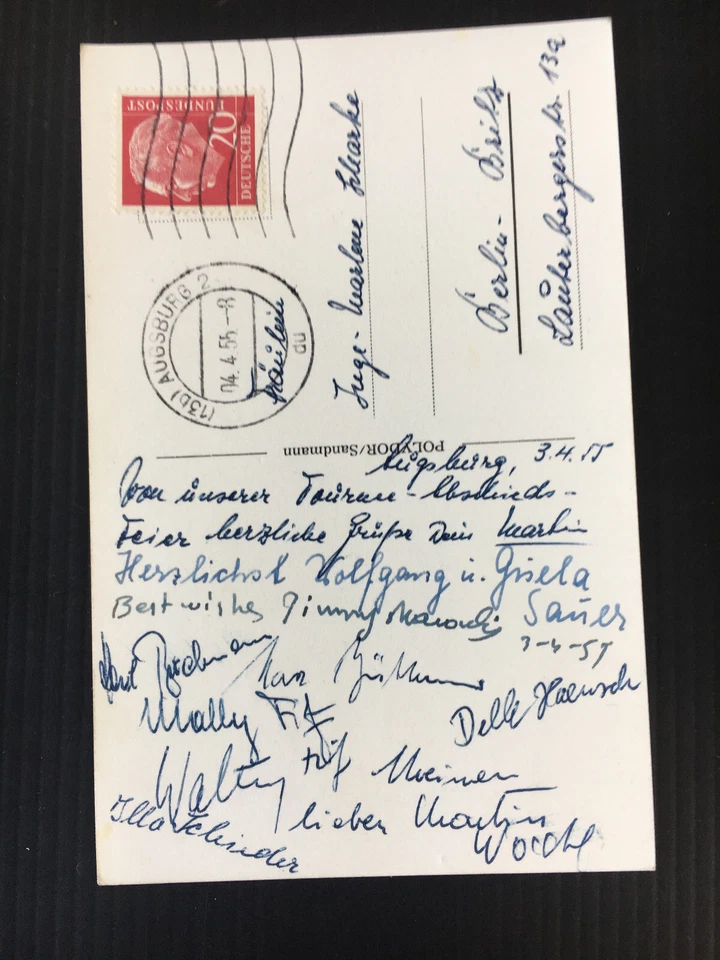 DEUTSCHE
BUNDESPOST
20
(13b) AUGSBURG 2
04.4.55-8
du
Fräulein
Inge-Marlene Scharke
Berlin-Britz
Lauterbergerstr. 13a
POLYDOR/Sandmann
Augsburg, 3.4.55
Von unserer Tournee-Abschieds-
feier herzliche Grüße Dein Martin
Herzlichst Wolfgang u. Gisela
Sauer
Best wishes Jimmy
3-4-55
Delle Haensch
Wally Fitz
Walter
auf Meinen
lieben Martin
Illo Schieder